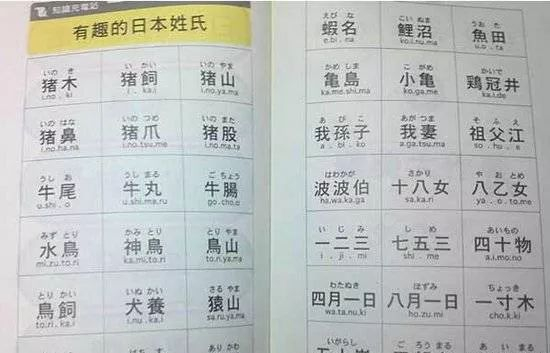 知識充電站
有趣的日本姓氏
いの き いの かい いの やま
猪木 猪飼 猪山
i.no.ki i.kai i.no.ya.ma
いの はな いの つめ いの また
猪鼻 猪爪 猪股
i.no.ha.na i.no.tsu.me i.no.ma.ta
うし お うし まる ご ちょう
牛尾 牛丸 牛腸
u.shi.o u.shi.ma.ru go.cho.o
みず とり か みとり とり やま
水鳥 神鳥 鳥山
mi.zu.to.ri ka.mi.to.ri to.ri.ya.ma
とり かい いぬ かい さる やま
鳥飼 犬養 猿山
to.ri.ka.i i.nu.ka.i sa.ru.ya.ma
はち す あり か
えび な こい ぬま うお た
蝦名 鯉沼 魚田
e.bi.na ko.i.nu.ma u.o.ta
かめ しま こ がめ かいで
亀島 小亀 鶏冠井
ka.me.shi.ma ko.ga.me ka.i.de
あ び こ あ がつま そ ふ え
我孫子 我妻 祖父江
a.bi.ko a.ga.tsu.ma so.hu.e
はわかが さかり や おとめ
波波伯 十八女 八乙女
ha.wa.ka.ga sa.ka.ri ya.o.to.me
い じ み し め あいもの
一二三 七五三 四十物
i.ji.mi shi.me a.i.mo.no
わたぬき ほずみ ちょっき
四月一日 八月一日 一寸木
wa.ta.nu.ki ho.zu.mi cho.k.ki
いがらし ごろう まる